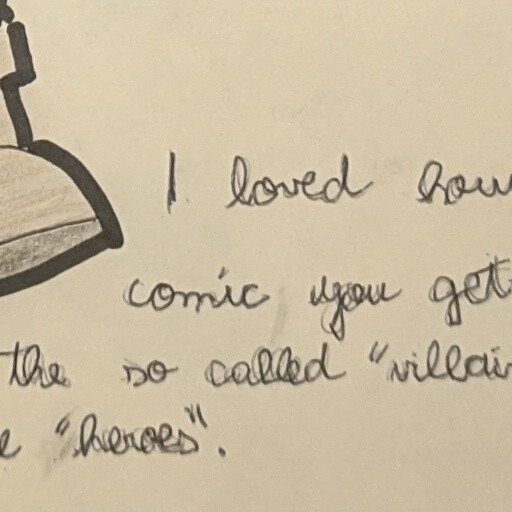 I loved how
comic you get
the so called "villai
e "heroes".